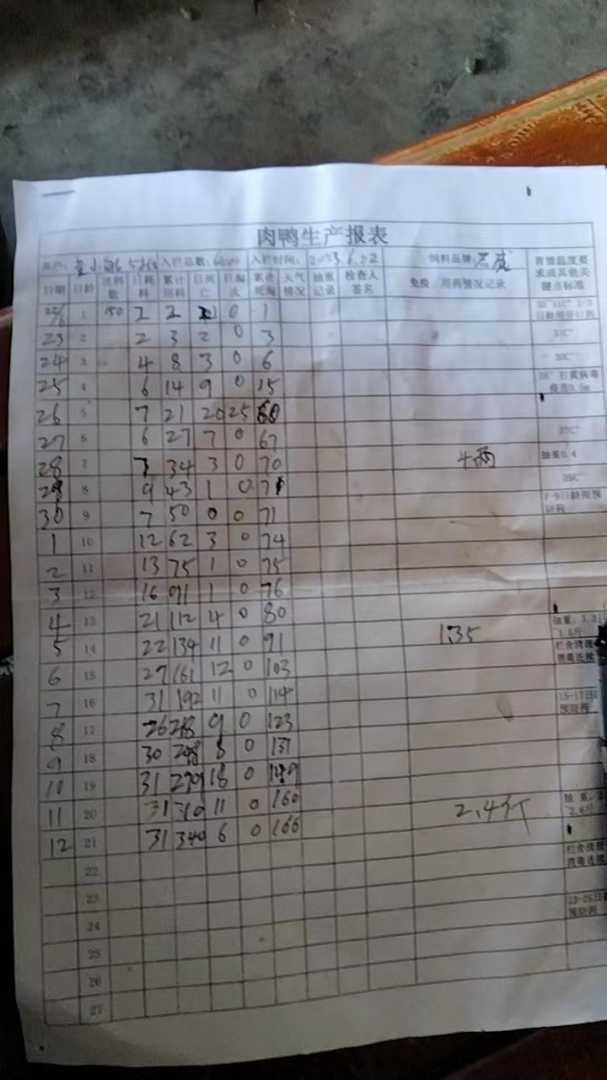 肉鸭生产报表
入栏总数: 入栏时间: 2023.6.22 饲料品牌:
日期 日龄 进料数 日耗料 累计用料 日死亡 日淘汰 累计死淘 天气情况 抽重记录 检查人签名 免疫、用药情况记录 育雏温度要求或其他关键点标准
22/6 1 150 2 2 0 1
23 2 2 3 2 0 3
24 3 4 8 3 0 6
25 4 6 14 9 0 15
26 5 7 21 20 25 60
27 6 6 27 7 0 67
28 7 7 34 3 0 70 4两 抽重0.4
29 8 9 43 1 0 71
30 9 7 50 0 0 71
1 10 12 62 3 0 74
2 11 13 75 1 0 75
3 12 16 91 1 0 76
4 13 21 112 4 0 80
5 14 22 134 11 0 91 1.35
6 15 27 161 12 0 103
7 16 31 192 11 0 114
8 17 26 218 9 0 123
9 18 30 248 8 0 131
10 19 31 279 18 0 149
11 20 31 310 11 0 160 2.4斤
12 21 31 340 6 0 166
22
23
24
25
26
27